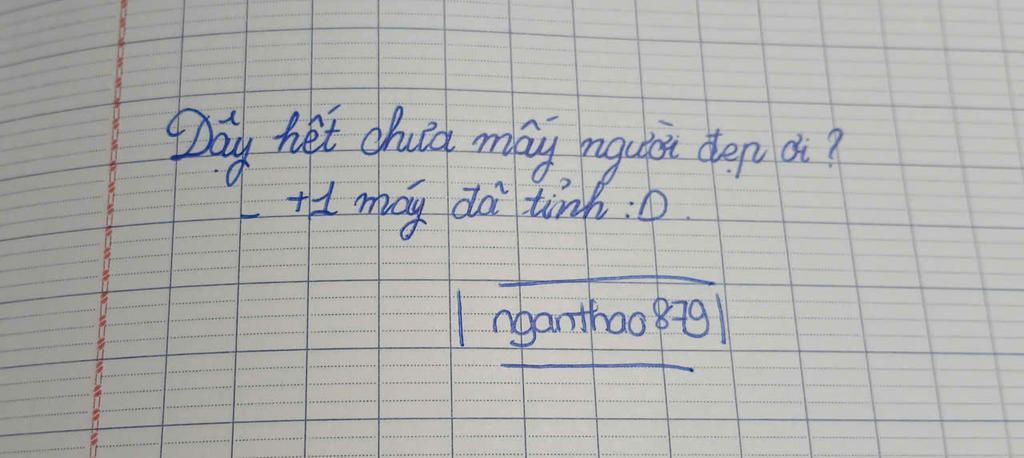 Dậy hết chưa mấy người đẹp ơi?
- +1 máy đã tỉnh :D.
nganthao879